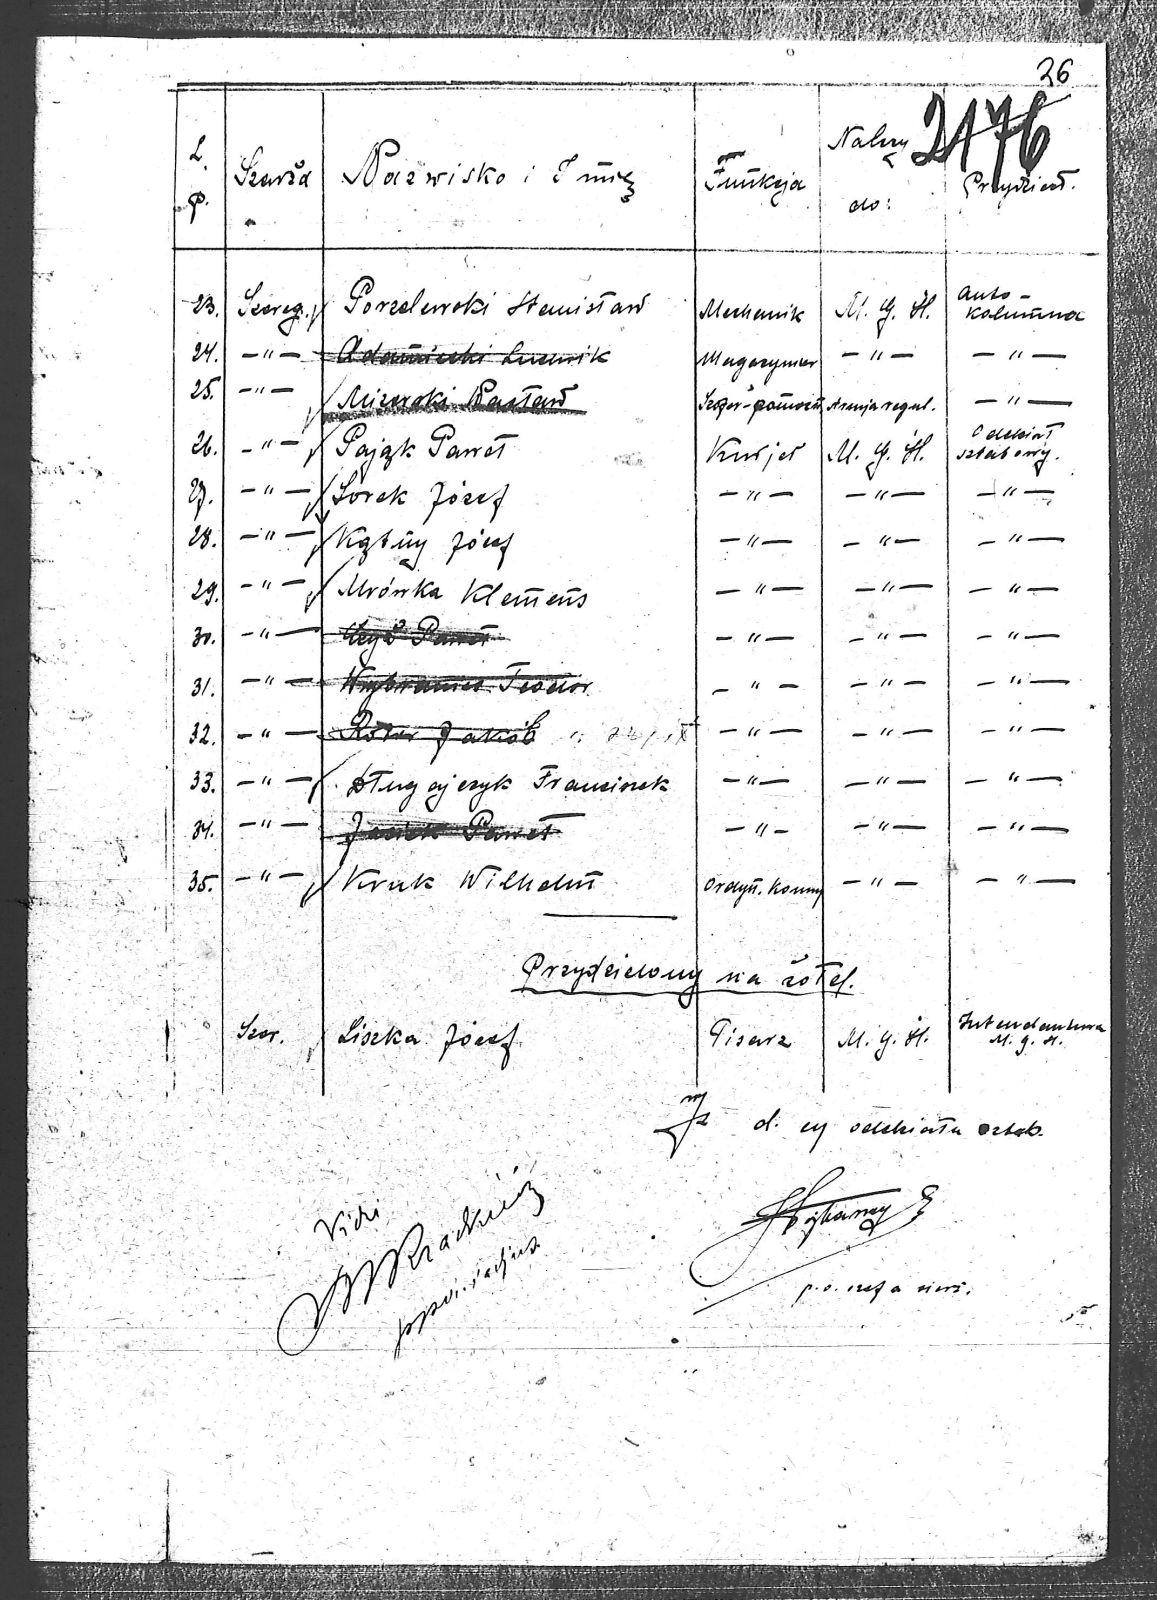 26
2176
L. p. Szarża Nazwisko i Imię Funkcja Należy do: Przydział.
23. Szereg. Porzelewski Stanisław Mechanik M. G. H. Auto-kolumna
24. —"— Ludwik Magazynier —"— —"—
25. —"— Mizerski Szofer-pomocn. Armja regul. —"—
26. —"— Pająk Paweł Kurjer M. G. H. Oddział sztabowy.
27. —"— Sorek Józef —"— —"— —"—
28. —"— Kątny Józef —"— —"— —"—
29. —"— Mrówka Klemens —"— —"— —"—
30. —"— Paweł —"— —"— —"—
31. —"— Teodor —"— —"— —"—
32. —"— Jakób —"— —"— —"—
33. —"— Długajczyk Franciszek —"— —"— —"—
34. —"— Paweł —"— —"— —"—
35. —"— Kruk Wilhelm Ordyn. konny —"— —"—
Przydzielony na żołd.
Szer. Liszka Józef Pisarz M. G. H. Intendantura M. G. H.
d. cy oddziału sztab.
Vidi
p.o. szefa